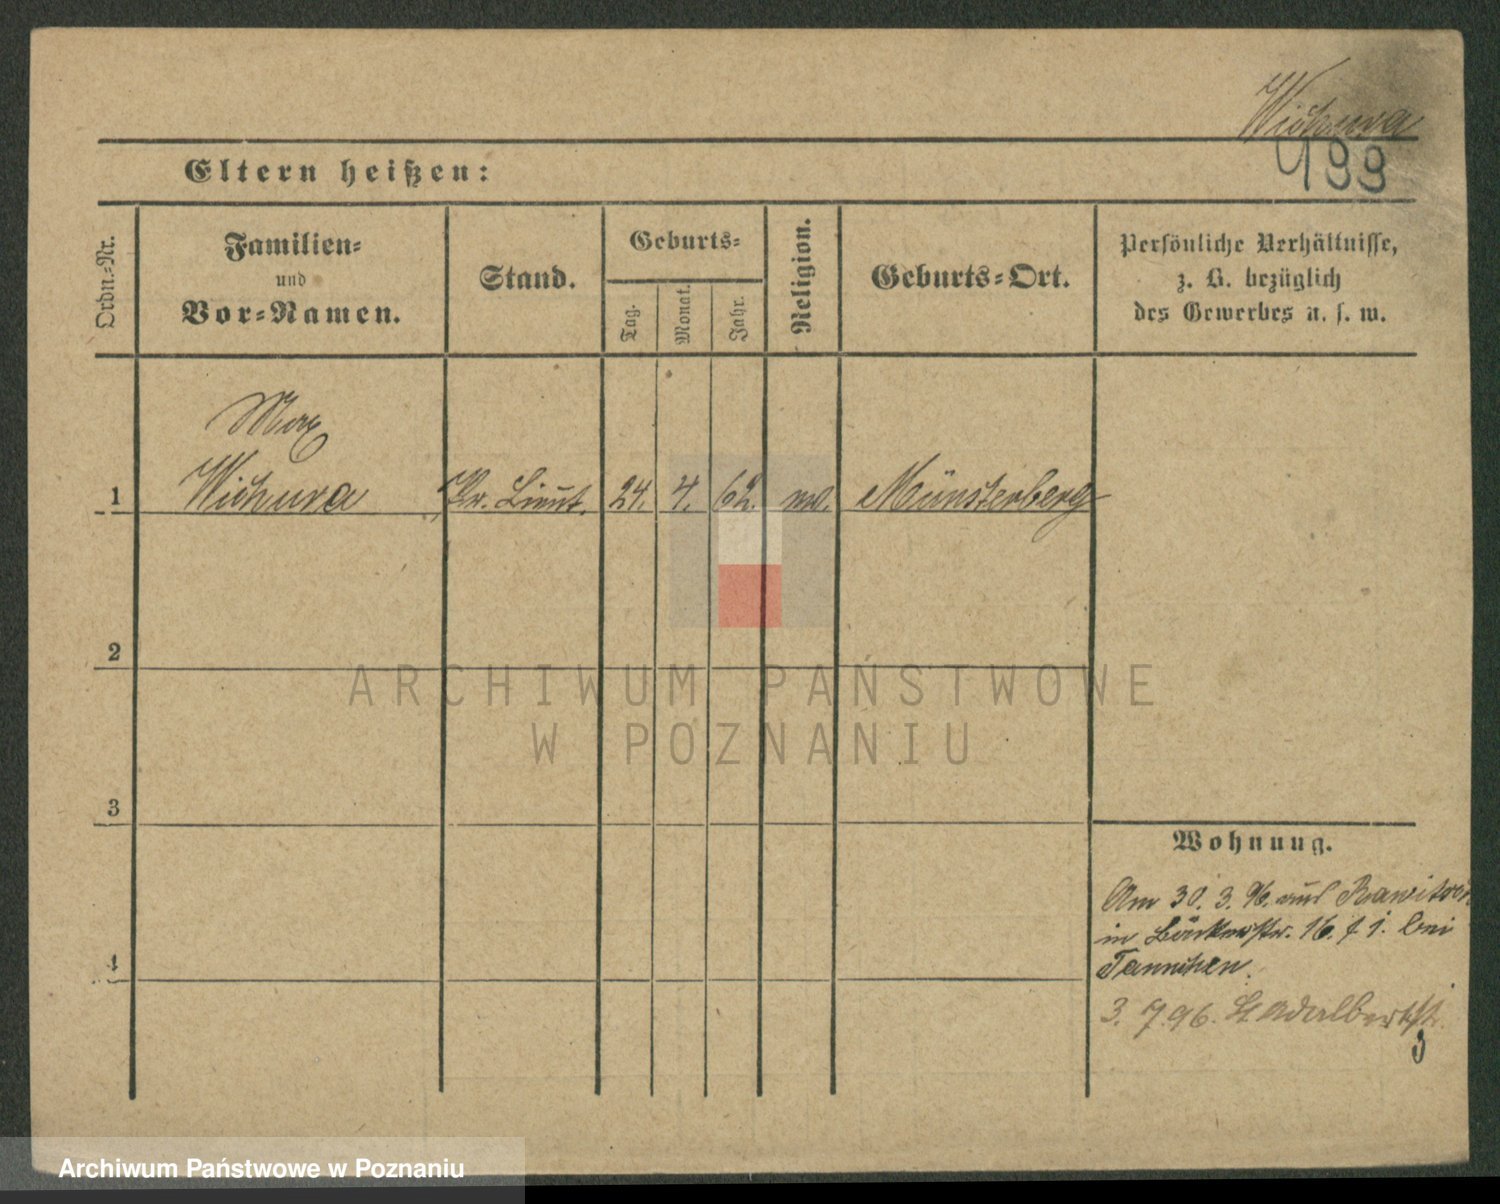 Wichura
499
Eltern heißen:
Ordn.-Nr.
Familien-
und
Vor-Namen.
Stand.
Geburts-
Tag.
Monat.
Jahr.
Religion.
Geburts-Ort.
Persönliche Verhältnisse,
z. B. bezüglich
des Gewerbes u. s. w.
Max
1 Wichura Pr. Lieut. 24. 4. 62. Münsterberg
2
3
4
Wohnung.
Am 30. 3. 96. aus Rawitsch
in Bäckerstr. 16. bei
3. 7. 96. St Adalbertstr.
3
ARCHIWUM PAŃSTWOWE
W POZNANIU
Archiwum Państwowe w Poznaniu